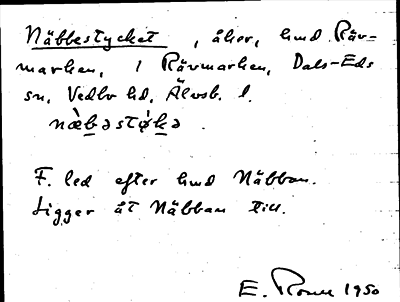 Näbbestycket, åker, hmd Räv-
marken, i Rävmarken, Dals-Eds
sn, Vedbo hd, Älvsb. l.
næ̀b̲əstø̀k̲ə.
F. led efter hmd Näbban.
Ligger åt Näbban till.
E. 1950